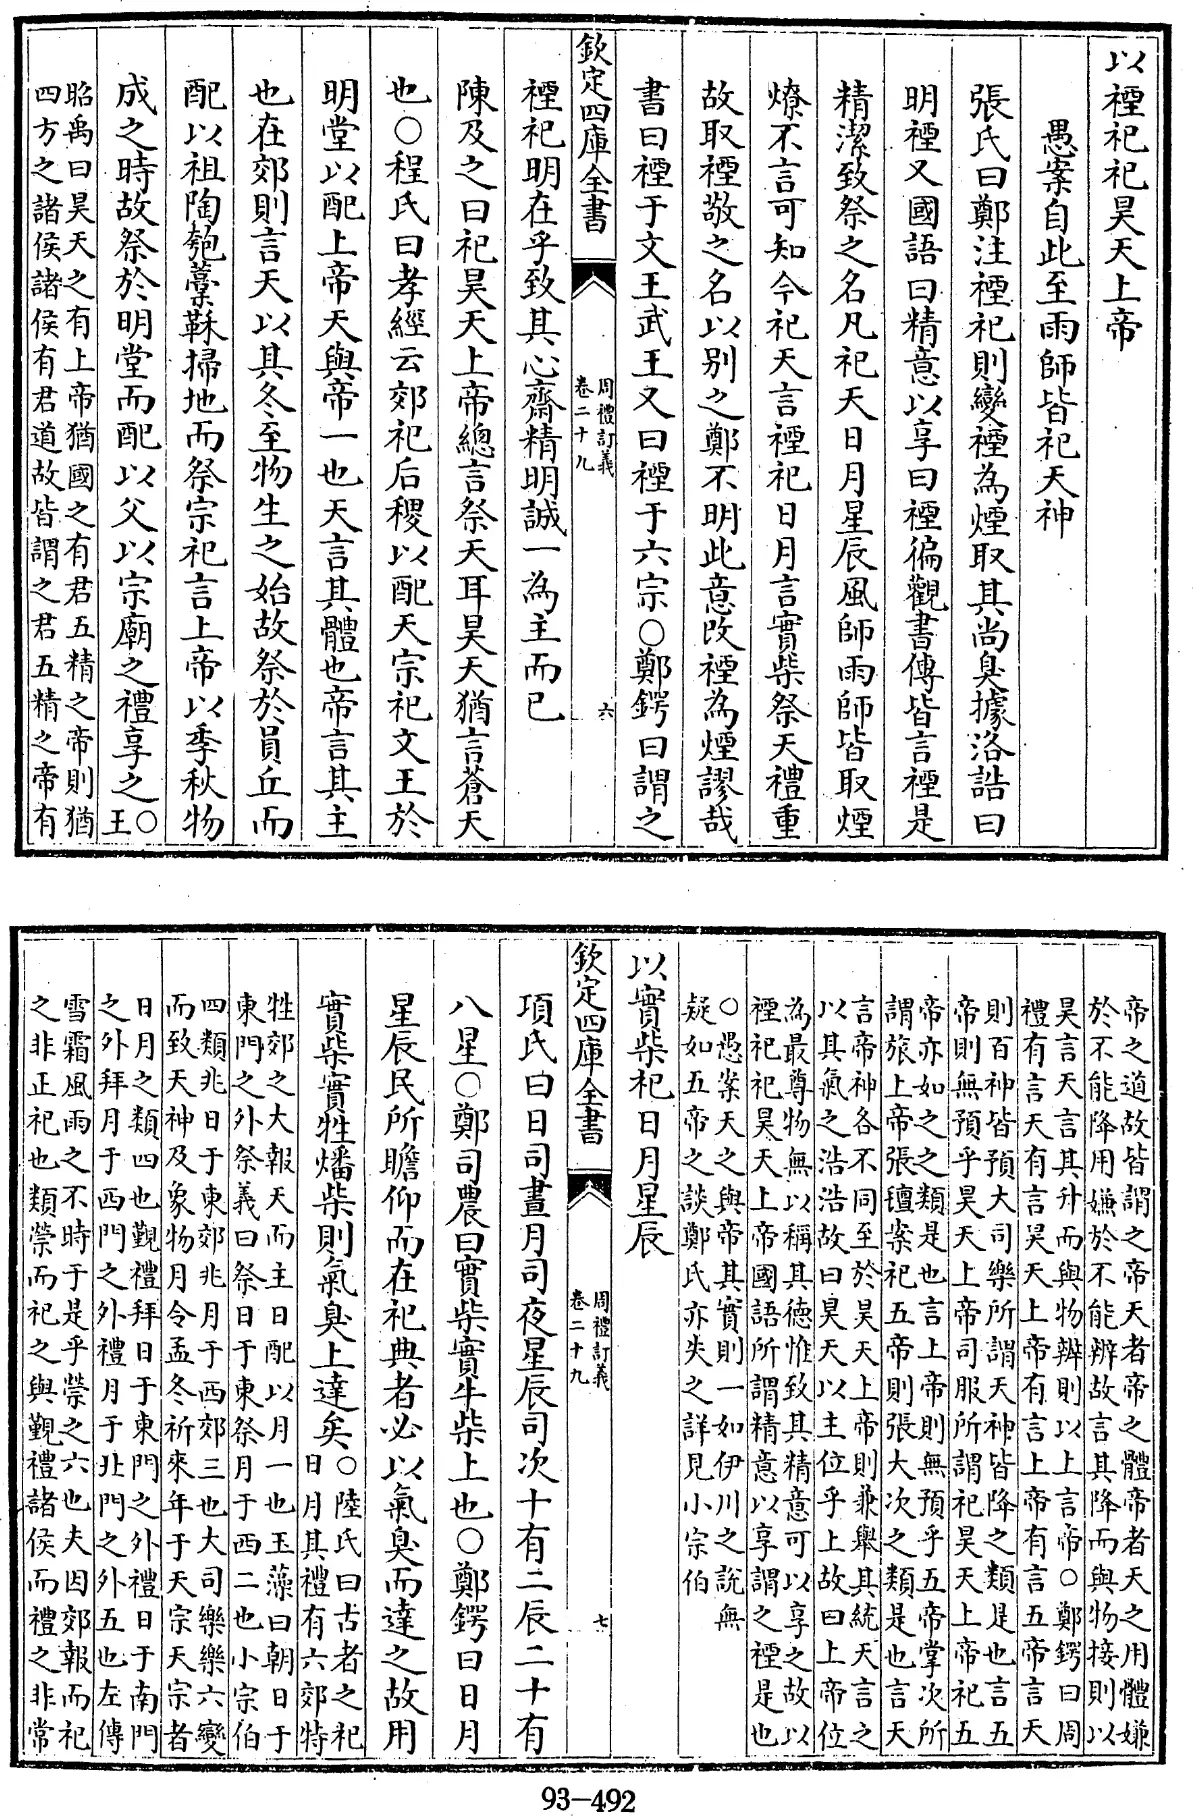 以禋祀祀昊天上帝
愚案自此至雨師皆祀天神
張氏曰鄭注禋祀則變禋為煙取其尚臭據洛誥曰
明禋又國語曰精意以享曰禋徧觀書傳皆言禋是
精潔致祭之名凡祀天日月星辰風師雨師皆取煙
燎不言可知今祀天言禋祀日月言實柴祭天禮重
故取禋敬之名以別之鄭不明此意改禋為煙謬哉
書曰禋于文王武王又曰禋于六宗○鄭鍔曰謂之
欽定四庫全書
周禮訂義
卷二十九
六
禋祀明在乎致其心齋精明誠一為主而已
陳及之曰祀昊天上帝總言祭天耳昊天猶言蒼天
也○程氏曰孝經云郊祀后稷以配天宗祀文王於
明堂以配上帝天與帝一也天言其體也帝言其主
也在郊則言天以其冬至物生之始故祭於員丘而
配以祖陶匏藁秣掃地而祭宗祀言上帝以季秋物
成之時故祭於明堂而配以父以宗廟之禮享之○
王
昭禹曰昊天之有上帝猶國之有君五精之帝則猶
四方之諸侯諸侯有君道故皆謂之君五精之帝有
帝之道故皆謂之帝天者帝之體帝者天之用體嫌
於不能降用嫌於不能辨故言其降而與物接則以
昊言天言其升而與物辨則以上言帝○鄭鍔曰周
禮有言天有言昊天上帝有言上帝有言五帝言天
則百神皆預大司樂所謂天神皆降之類是也言五
帝則無預乎昊天上帝司服所謂祀昊天上帝祀五
帝亦如之之類是也言上帝則無預乎五帝掌次所
謂旅上帝張氊案祀五帝則張大次之類是也言天
言帝神各不同至於昊天上帝則兼舉其統天言之
以其氣之浩浩故曰昊天以主位乎上故曰上帝位
為最尊物無以稱其德惟致其精意可以享之故以
禋祀祀昊天上帝國語所謂精意以享謂之禋是也
○愚案天之與帝其實則一如伊川之說無
疑如五帝之談鄭氏亦失之詳見小宗伯
以實柴祀日月星辰
欽定四庫全書
周禮訂義
卷二十九
七
項氏曰日司晝月司夜星辰司次十有二辰二十有
八星○鄭司農曰實柴實牛柴上也○鄭鍔曰日月
星辰民所瞻仰而在祀典者必以氣臭而達之故用
實柴實牲燔柴則氣臭上達矣
○陸氏曰古者之祀
日月其禮有六郊特
牲郊之大報天而主日配以月一也玉藻曰朝日于
東門之外祭義曰祭日于東祭月于西二也小宗伯
四類兆日于東郊兆月于西郊三也大司樂樂六變
而致天神及象物月令孟冬祈來年于天宗天宗者
日月之類四也覲禮拜日于東門之外禮日于南門
之外拜月于西門之外禮月于北門之外五也左傳
雪霜風雨之不時于是乎禜之六也夫因郊報而祀
之非正祀也類禜而祀之與覲禮諸侯而禮之非常
93-492